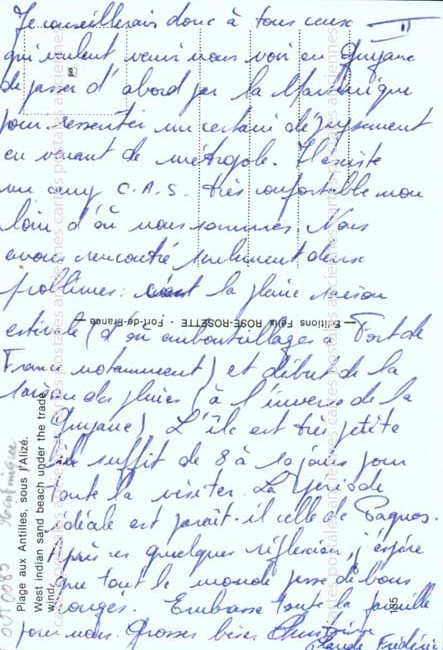 Je conseillerais donc à tous ceux — II
qui veulent venir nous voir en Guyane
de passer d'abord par la Martinique
pour ressentir un certain dépaysement
en venant de métropole. Il existe
un camp C.A.S. très confortable non
loin d'où nous sommes. Nous
avons rencontré seulement deux
problèmes : la pleine saison
estivale (d'où embouteillages à Fort de
France notamment) et début de la
saison des pluies (à l'inverse de la
Guyane). L'île est très petite
suffit de 8 à 10 jours pour
toute la visiter. La période
idéale est paraît-il celle de Pâques.
Après ces quelques réflexions, j'espère
que tout le monde passe de bons
congés. Embrasse toute la famille
pour nous. Grosses bises Christine
Claude Frédéric
Editions Felix ROSE-ROSETTE - Fort-de-France
Plage aux Antilles, sous l'Alizé.
West indian sand beach under the trade
wind.
135
Martinique
OUT 0085
cartes postales anciennes cartes postales anciennes cartes postales anciennes